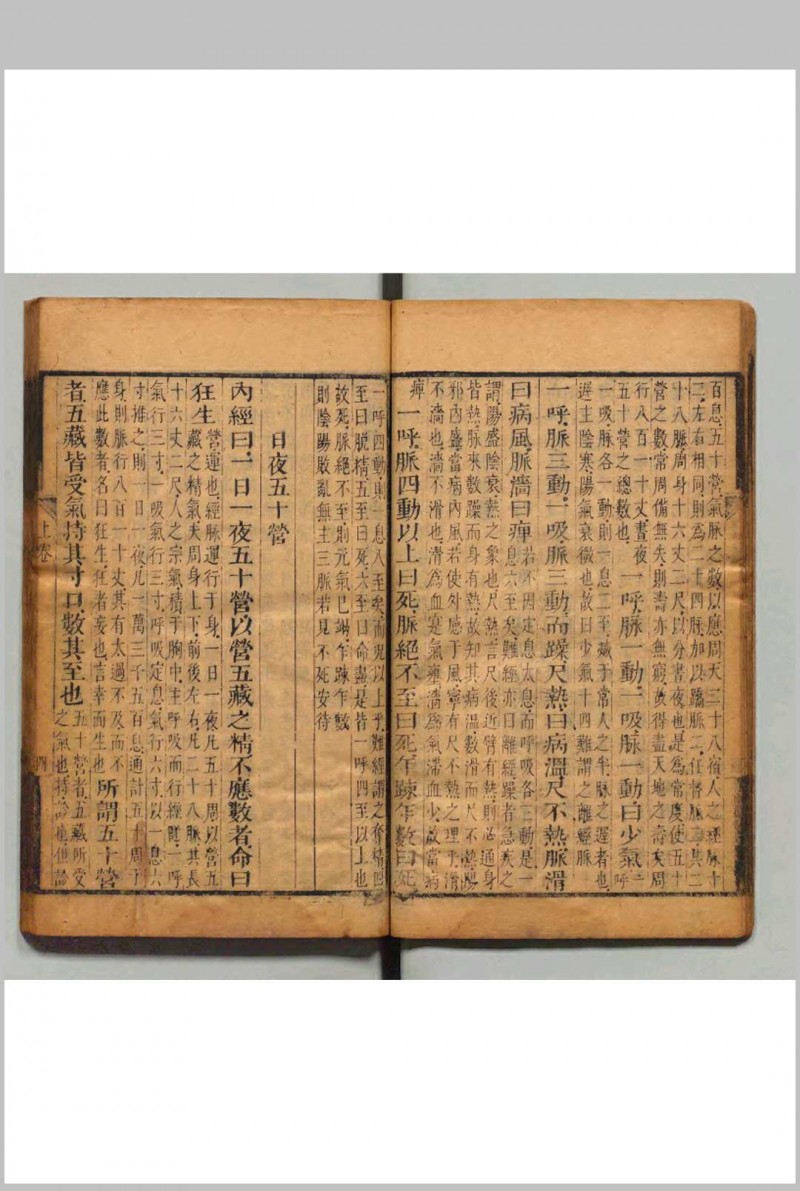 百息五十營氣脈之數以應周天三十八宿人之經脈十
二左右相同則爲二十四脈加以蹻脈二任督脈二共二
十八脈周身十六丈二尺以分晝夜也是爲常度使五十
營之數常周備無失則壽亦無窮故得盡天地之壽矣周
行八百一十丈晝夜
五十營之總數也
一呼脈一動一吸脈一動曰少氣
一呼一
一吸脈各一動則一息二至減于常人之半脈之遲者也
遲主陰寒陽氣衰微也故曰少氣十四難謂之離經脈
一呼脈三動一吸脈三動而躁尺熱曰病溫尺不熱脈滑
曰病風脈濇曰痺
若不因定息太息而呼吸各三動是一
息六至矣難經亦曰離經躁者急疾之
謂陽盛陰衰熱之象也尺熱言尺後近臂有熱則必通身
皆熱脈來數躁而身有熱故知其病溫數滑而尺不熱陽
邪內盛當病內風若使外感于風寧有尺不熱之理乎滑
不濇也濇不滑也滑爲血實氣壅濇爲氣滯血少故當病
痺
一呼脈四動以上曰死脈絕不至曰死乍踈乍數曰死
一呼四動則一息八至矣而況以上乎難經謂之奪精四
至曰脫精五至曰死六至曰命盡是皆一呼四至以上也
故死脈絕不至則元氣已竭乍踈乍數
則陰陽敗亂無主三脈若見不死安待
日夜五十營
內經曰一日一夜五十營以營五藏之精不應數者命曰
狂生
營運也經脈運行于身一日一夜凡五十周以營五
藏之精氣夫周身上下前後左右凡二十八脈其長
十六丈二尺人之宗氣積于胸中主呼吸而行經隧一呼
氣行三寸一吸氣行三寸呼吸定息氣行六寸以一息六
寸推之則一日一夜凡一萬三千五百息通計五十周于
身則脈行八百一十丈其有太過不及而不
應此數者名曰狂生狂者妄也言幸而生也
所謂五十營
者五藏皆受氣持其寸口數其至也
五十營者五藏所受
之氣也持診也但診
上卷
四